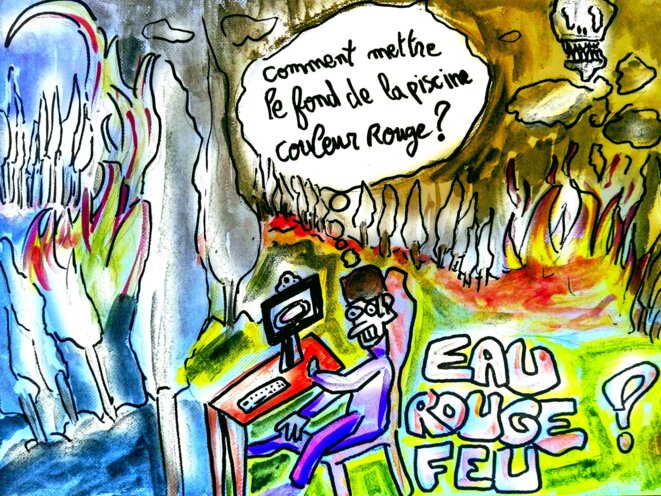 comment mettre
le fond de la piscine
couleur Rouge?
EAU
ROUGE
FEU ?